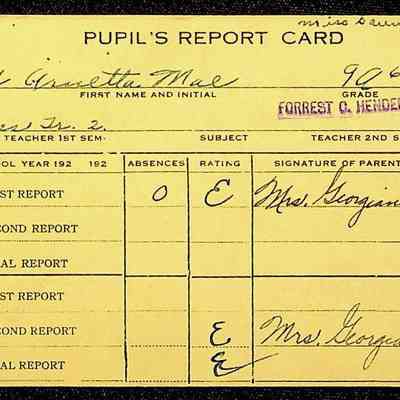 Miss
PUPIL'S REPORT CARD
Mae 906
FIRST NAME AND INITIAL GRADE
FORREST C. HENDE
Tr. 2.
TEACHER 1ST SEM· SUBJECT TEACHER 2ND S
OL YEAR 192 192 ABSENCES RATING SIGNATURE OF PARENT
ST REPORT O E Mrs. Georgian
OND REPORT
AL REPORT
ST REPORT
OND REPORT E Mrs. Georgia
AL REPORT E